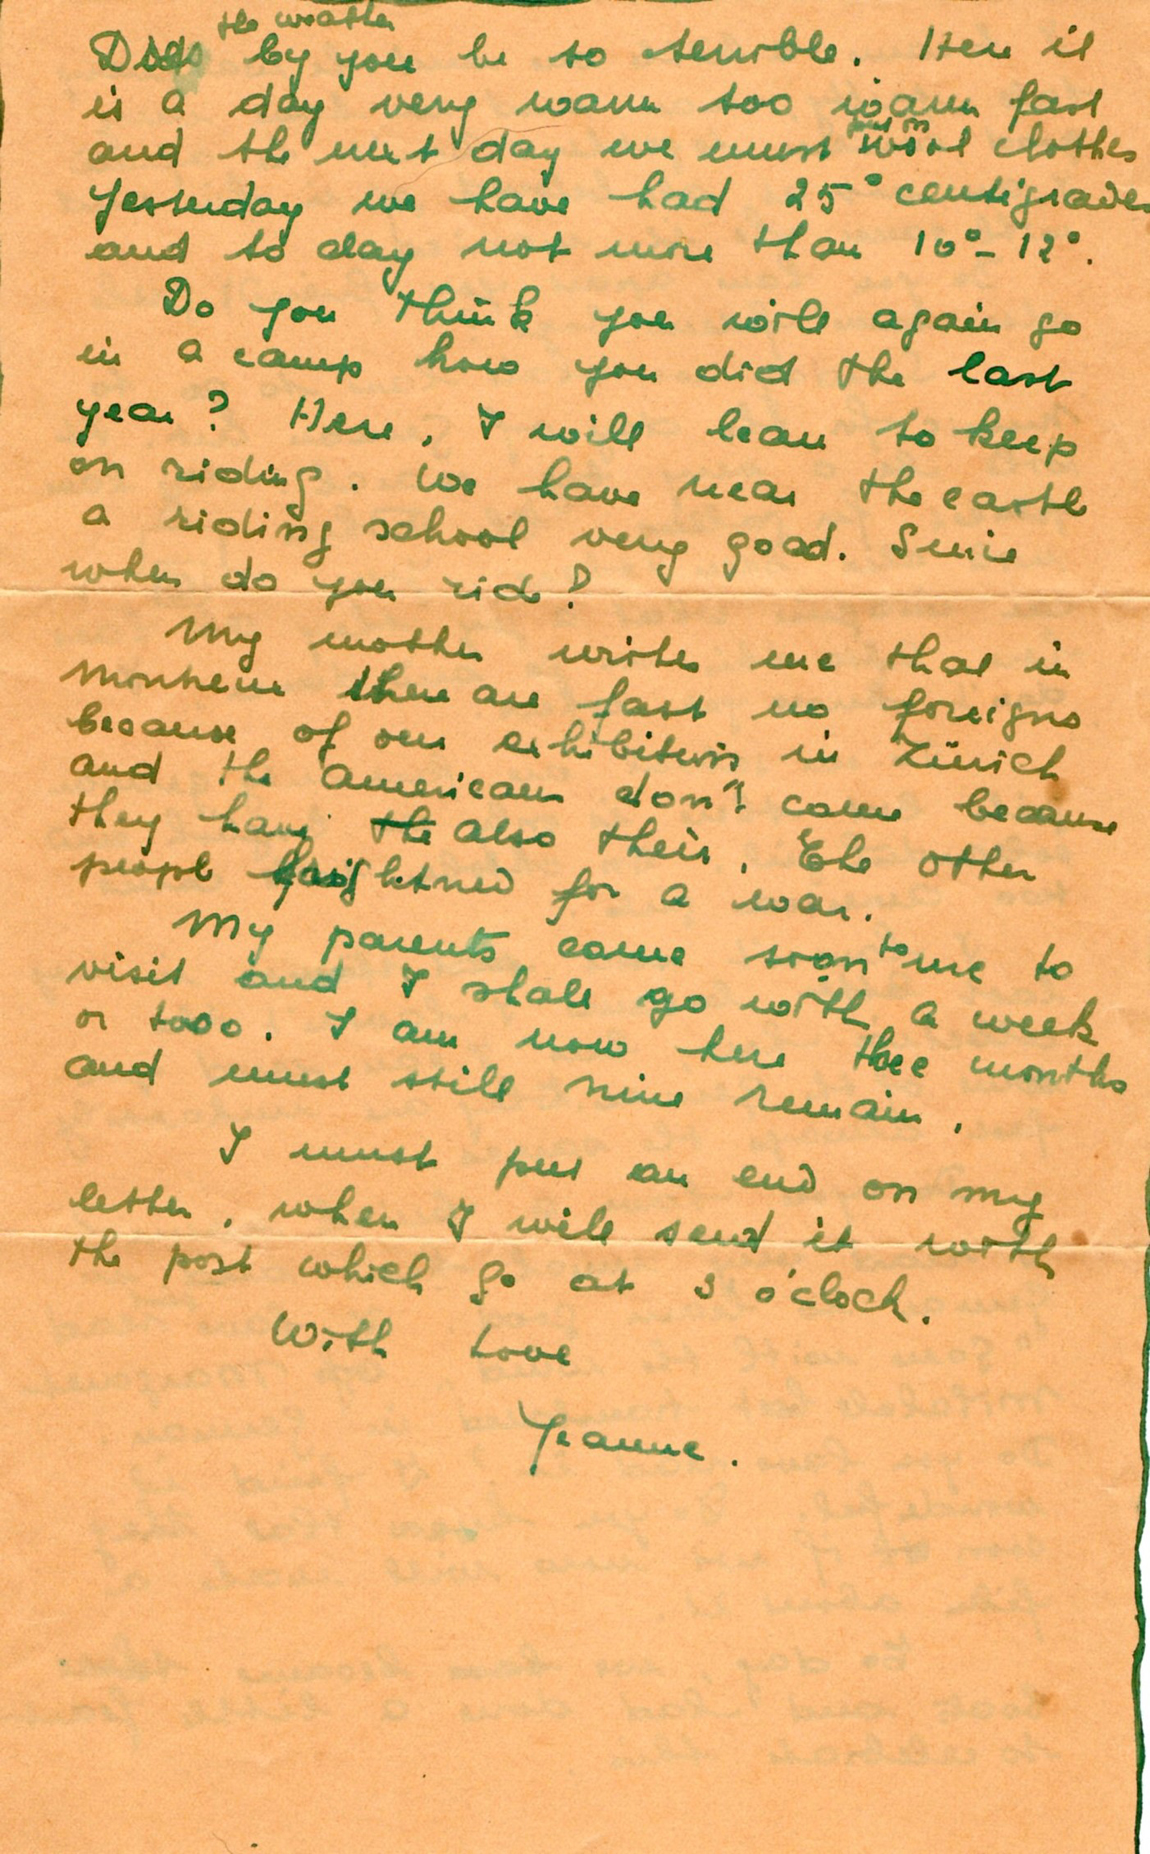 Does the weather by you be so terrible. Here it
is a day very warm too warm fast
and the next day we must put on wool clothes
Yesterday we have had 25° centigrades
and to day not more than 10°-12°.
Do you think you will again go
in a camp how you did the last
year? Here, I will lean to keep
on riding. We have near the castle
a riding school very good. Since
when do you ride?
My mother writes me that in
Montreux there are fast no foreigns
because of our exhibition in Zürich
and the americans don't come because
they have also their. The other
people frightned for a war.
My parents come soon to me to
visit and I shall go with a week
or two. I am now here thee months
and must still nine remain.
I must put an end on my
letter, when I will send it with
the post which go at 3 o'clock.
With Love
Jeanne.